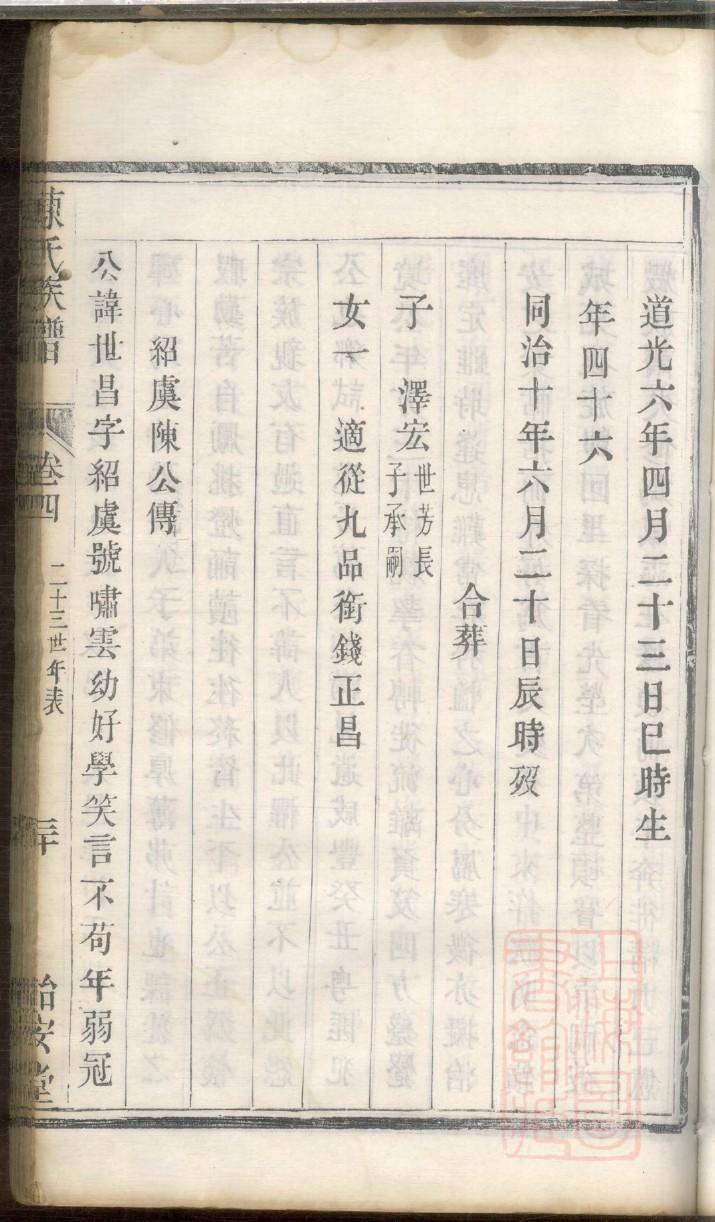 道光六年四月二十三日巳時生
年四十六
同治十年六月二十日辰時歿
合葬
子　澤宏世芳長
子承嗣
女一　適從九品銜錢正昌
紹虞陳公傳
公諱世昌字紹虞號嘯雲幼好學笑言不苟年弱冠
陳氏族譜　卷四　二十三世年表　怡安堂